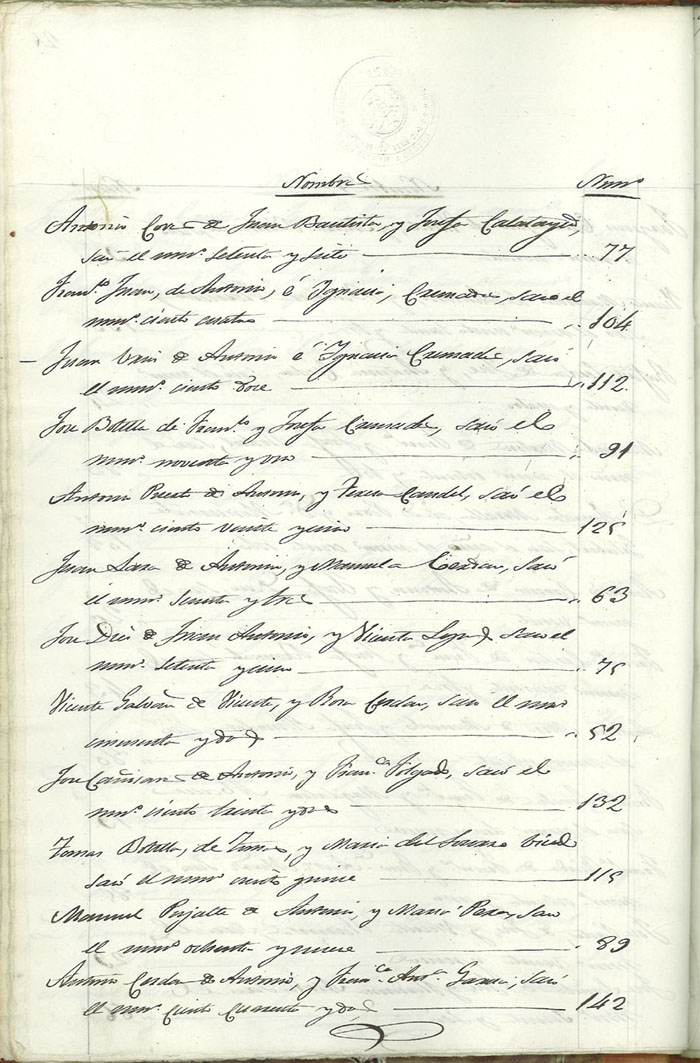 Nombres Num.º
Antonio de Juan Bautista, y Josefa Calatayud,
sacó el num.º setenta y siete 77
Fran.co Juan, de Antonio, é Ignacia, sacó el
num.º ciento cuatro 104
Juan de Antonio é Ignacia sacó
el num.º ciento doce 112
Jose Botella de Fran.co y Josefa sacó el
num.º noventa y uno 91
Antonio Puerto de Antonio, y Teresa Candel, sacó el
num.º ciento veinte y cinco 125
Juan de Antonio, y Manuela Cerdan, sacó
el num.º sesenta y tres 63
Jose de Juan Antonio, y Vicenta sacó el
num.º setenta y cinco 75
Vicente Galvañ de Vicente, y Rosa Cerdan, sacó el num.º
cincuenta y dos 52
Jose de Antonio, y Fran.ca Folgado, sacó el
num.º ciento treinta y dos 132
Tomas Botella, de Tomas, y Maria del
sacó el num.º ciento quince 115
Manuel Pujalte de Antonio, y Maria Perez, sacó
el num.º ochenta y nueve 89
Antonio Cerdan de Antonio, y Fran.ca Ant.ª Garcia, sacó
el num.º ciento cuarenta y dos 142